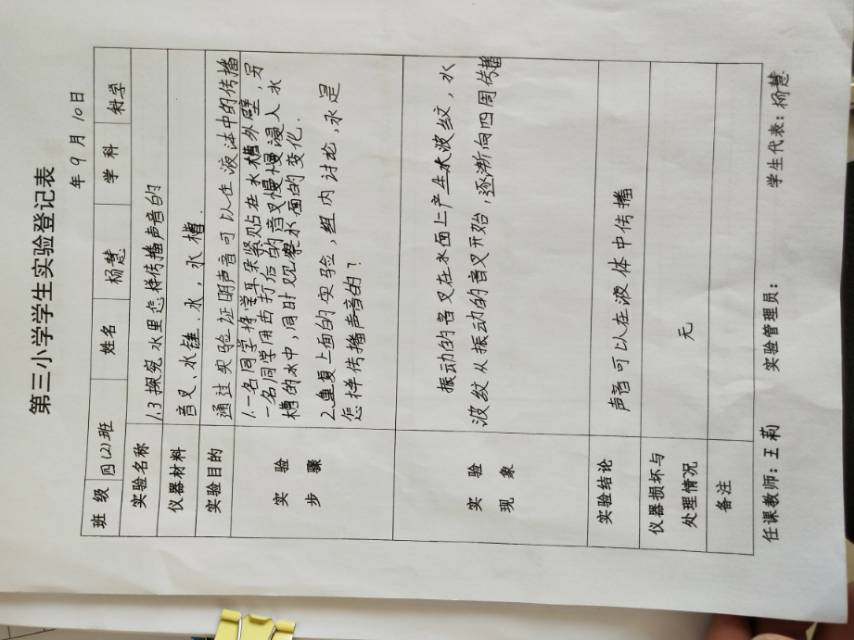 第三小学学生实验登记表
年 9 月 10 日
班 级 四(2)班 姓名 杨慧 学 科 科学
实验名称 1.3 探究水里怎样传播声音的
仪器材料 音叉、水锤.水,水槽.
实验目的 通过实验证明声音可以在液体中的传播
实 验 步 骤
1.一名同学将学耳朵紧贴在水槽外壁,另
一名同学用击打后的音叉慢慢浸入水
槽的水中,同时观察水面的变化.
2.重复上面的实验,组内讨论,水是
怎样传播声音的?
实 验 现 象
振动的音叉在水面上产生水波纹,水
波纹从振动的音叉开始,逐渐向四周传播
实验结论 声音可以在液体中传播
仪器损坏与
处理情况 无
备注
任课教师:王莉 实验管理员: 学生代表:杨慧